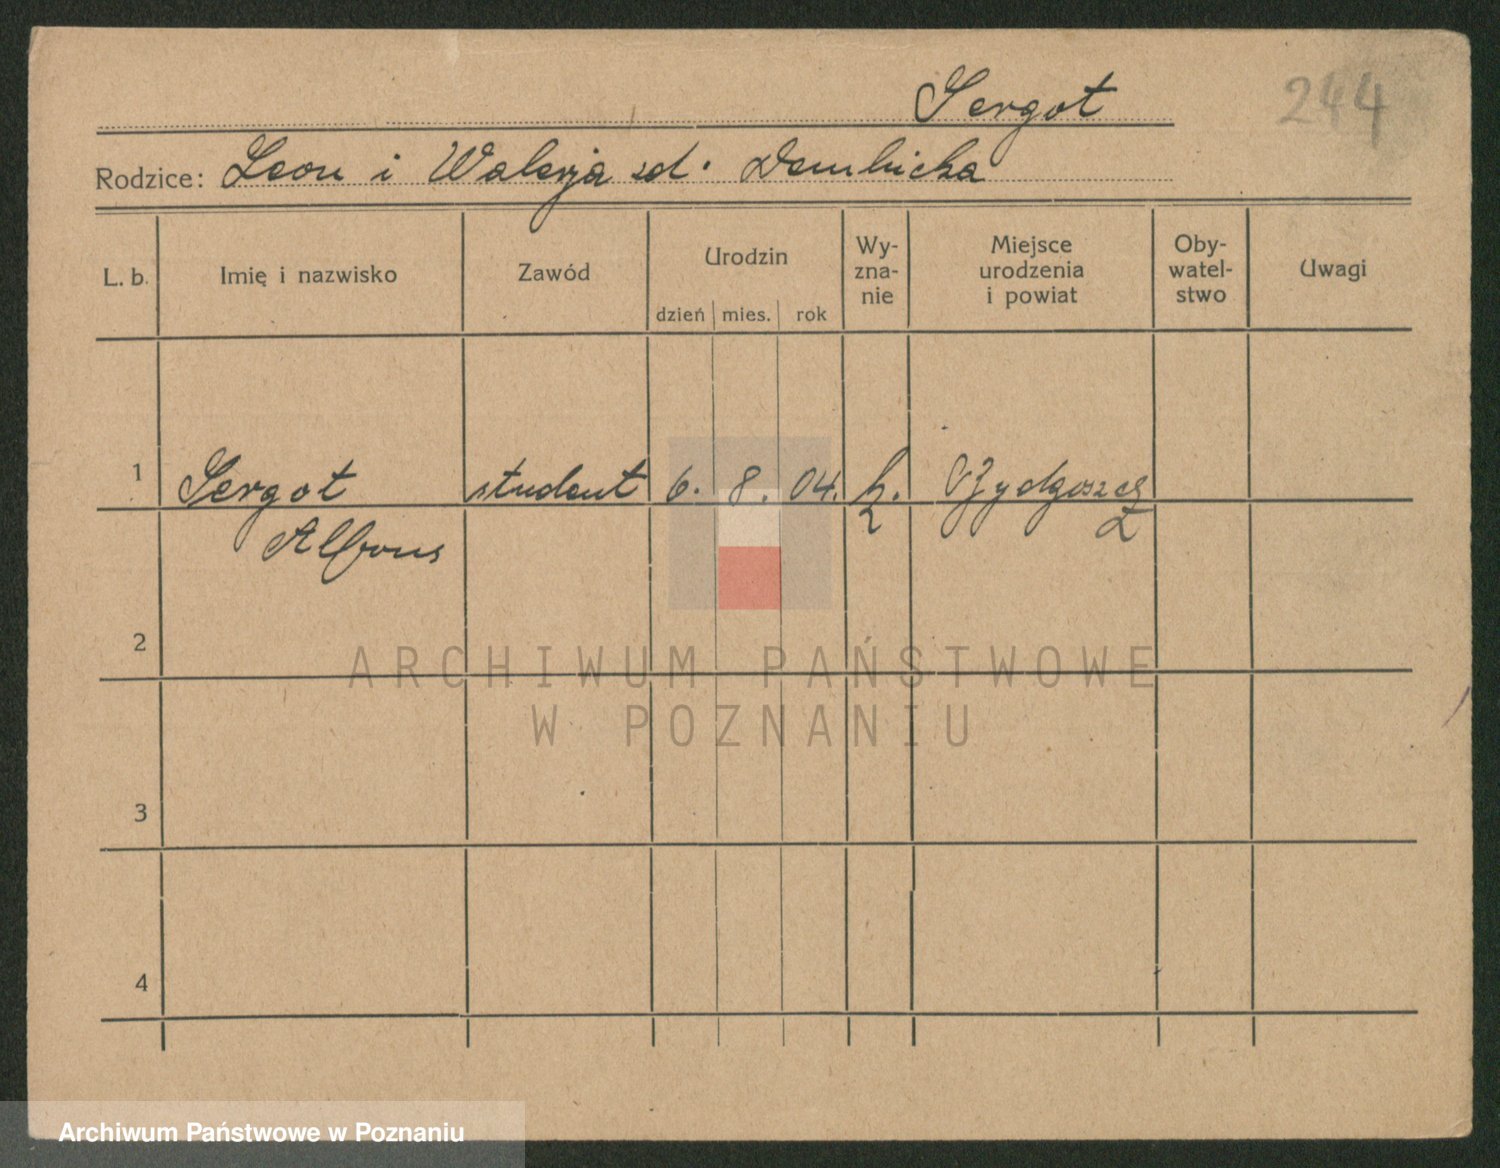 Sergot
244
Rodzice: Leon i Walerja zd. Dembicka
L. b.
Imię i nazwisko
Zawód
Urodzin
dzień mies. rok
Wy-
zna-
nie
Miejsce
urodzenia
i powiat
Oby-
watel-
stwo
Uwagi
1 Sergot student 6. 8. 04. k. Bydgoszcz
Alfons
2
3
4
ARCHIWUM PAŃSTWOWE
W POZNANIU
Archiwum Państwowe w Poznaniu